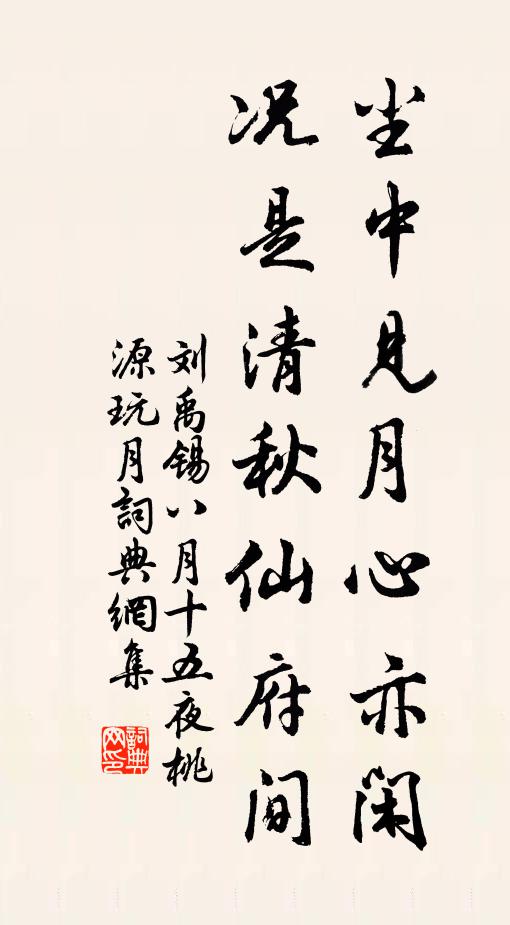 尘中见月心亦闲
况是清秋仙府间
刘禹锡八月十五夜桃
源玩月詞典網集
詞典
网印